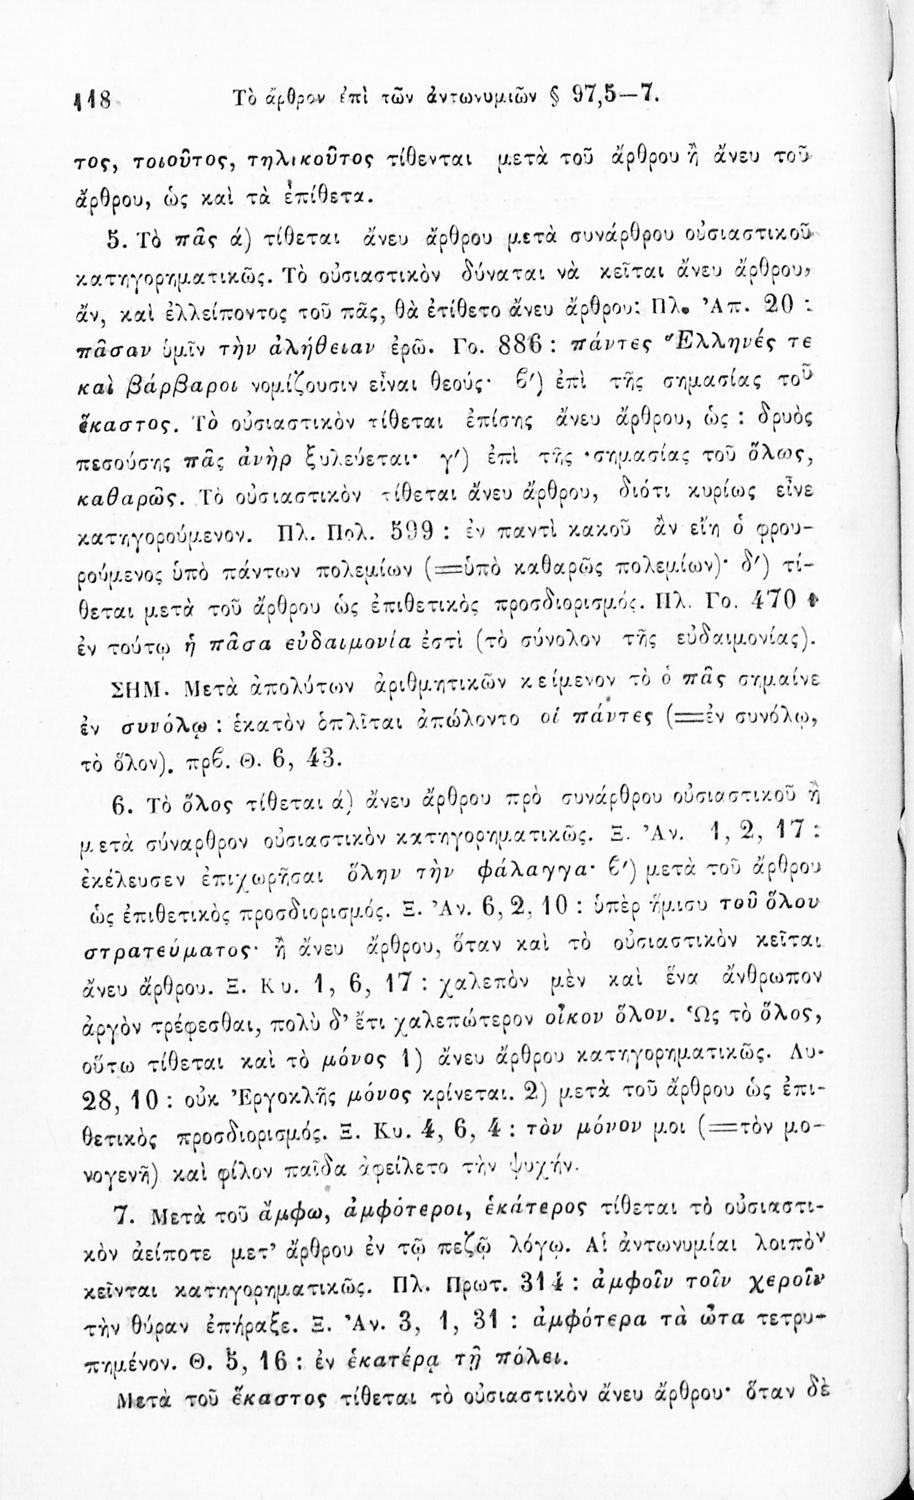 118 Τὸ ἄρθρον ἐπὶ τῶν ἀντωνυμιῶν § 97,5—7.
τος, τοιοῦτος, τηλικοῦτος τίθενται μετὰ τοῦ ἄρθρου ἢ ἄνευ τοῦ
ἄρθρου, ὡς καὶ τὰ ἐπίθετα.
5. Τὸ πᾶς ά) τίθεται ἄνευ ἄρθρου μετὰ συνάρθρου οὐσιαστικοῦ
κατηγορηματικῶς. Τὸ οὐσιαστικὸν δύναται νὰ κεῖται ἄνευ ἄρθρου,
ἄν, καὶ ἐλλείποντος τοῦ πᾶς, θὰ ἐτίθετο ἄνευ ἄρθρου: Πλ. Ἀπ. 20 :
πᾶσαν ὑμῖν τὴν ἀλήθειαν ἐρῶ. Γο. 886 : πάντες Ἕλληνές τε
καὶ βάρβαροι νομίζουσιν εἶναι θεούς· β′) ἐπὶ τῆς σημασίας τοῦ
ἕκαστος. Τὸ οὐσιαστικὸν τίθεται ἐπίσης ἄνευ ἄρθρου, ὡς : δρυὸς
πεσούσης πᾶς ἀνὴρ ξυλεύεται· γ′) ἐπὶ τῆς σημασίας τοῦ ὅλως,
καθαρῶς. Τὸ οὐσιαστικὸν τίθεται ἄνευ ἄρθρου, διότι κυρίως εἶνε
κατηγορούμενον. Πλ. Πολ. 599 : ἐν παντὶ κακοῦ ἂν εἴη ὁ φρου-
ρούμενος ὑπὸ πάντων πολεμίων (=ὑπὸ καθαρῶς πολεμίων)· δ′) τί-
θεται μετὰ τοῦ ἄρθρου ὡς ἐπιθετικὸς προσδιορισμός. Πλ. Γο. 470 :
ἐν τούτῳ ἡ πᾶσα εὐδαιμονία ἐστὶ (τὸ σύνολον τῆς εὐδαιμονίας).
ΣΗΜ. Μετὰ ἀπολύτων ἀριθμητικῶν κείμενον τὸ ὁ πᾶς σημαίνε
ἐν συνόλῳ : ἑκατὸν ὁπλῖται ἀπώλοντο οἱ πάντες (=ἐν συνόλῳ,
τὸ ὅλον). πρβ. Θ. 6, 43.
6. Τὸ ὅλος τίθεται ά) ἄνευ ἄρθρου πρὸ συνάρθρου οὐσιαστικοῦ ἢ
μετὰ σύναρθρον οὐσιαστικὸν κατηγορηματικῶς. Ξ. Ἀν. 1, 2, 17 :
ἐκέλευσεν ἐπιχωρῆσαι ὅλην τὴν φάλαγγα· β′) μετὰ τοῦ ἄρθρου
ὡς ἐπιθετικὸς προσδιορισμός. Ξ. Ἀν. 6, 2, 10 : ὑπὲρ ἥμισυ τοῦ ὅλου
στρατεύματος· ἢ ἄνευ ἄρθρου, ὅταν καὶ τὸ οὐσιαστικὸν κεῖται
ἄνευ ἄρθρου. Ξ. Κυ. 1, 6, 17 : χαλεπὸν μὲν καὶ ἕνα ἄνθρωπον
ἀργὸν τρέφεσθαι, πολὺ δ' ἔτι χαλεπώτερον οἶκον ὅλον. Ὡς τὸ ὅλος,
οὕτω τίθεται καὶ τὸ μόνος 1) ἄνευ ἄρθρου κατηγορηματικῶς. Λυ.
28, 10 : οὐκ Ἐργοκλῆς μόνος κρίνεται. 2) μετὰ τοῦ ἄρθρου ὡς ἐπι-
θετικὸς προσδιορισμός. Ξ. Κυ. 4, 6, 4 : τὸν μόνον μοι (=τὸν μο-
νογενῆ) καὶ φίλον παῖδα ἀφείλετο τὴν ψυχήν.
7. Μετὰ τοῦ ἄμφω, ἀμφότεροι, ἑκάτερος τίθεται τὸ οὐσιαστι-
κὸν ἀείποτε μετ' ἄρθρου ἐν τῷ πεζῷ λόγῳ. Αἱ ἀντωνυμίαι λοιπὸν
κεῖνται κατηγορηματικῶς. Πλ. Πρωτ. 314 : ἀμφοῖν τοῖν χεροῖν
τὴν θύραν ἐπήραξε. Ξ. Ἀν. 3, 1, 31 : ἀμφότερα τὰ ὦτα τετρυ-
πημένον. Θ. 5, 16 : ἐν ἑκατέρᾳ τῇ πόλει.
Μετὰ τοῦ ἕκαστος τίθεται τὸ οὐσιαστικὸν ἄνευ ἄρθρου· ὅταν δὲ